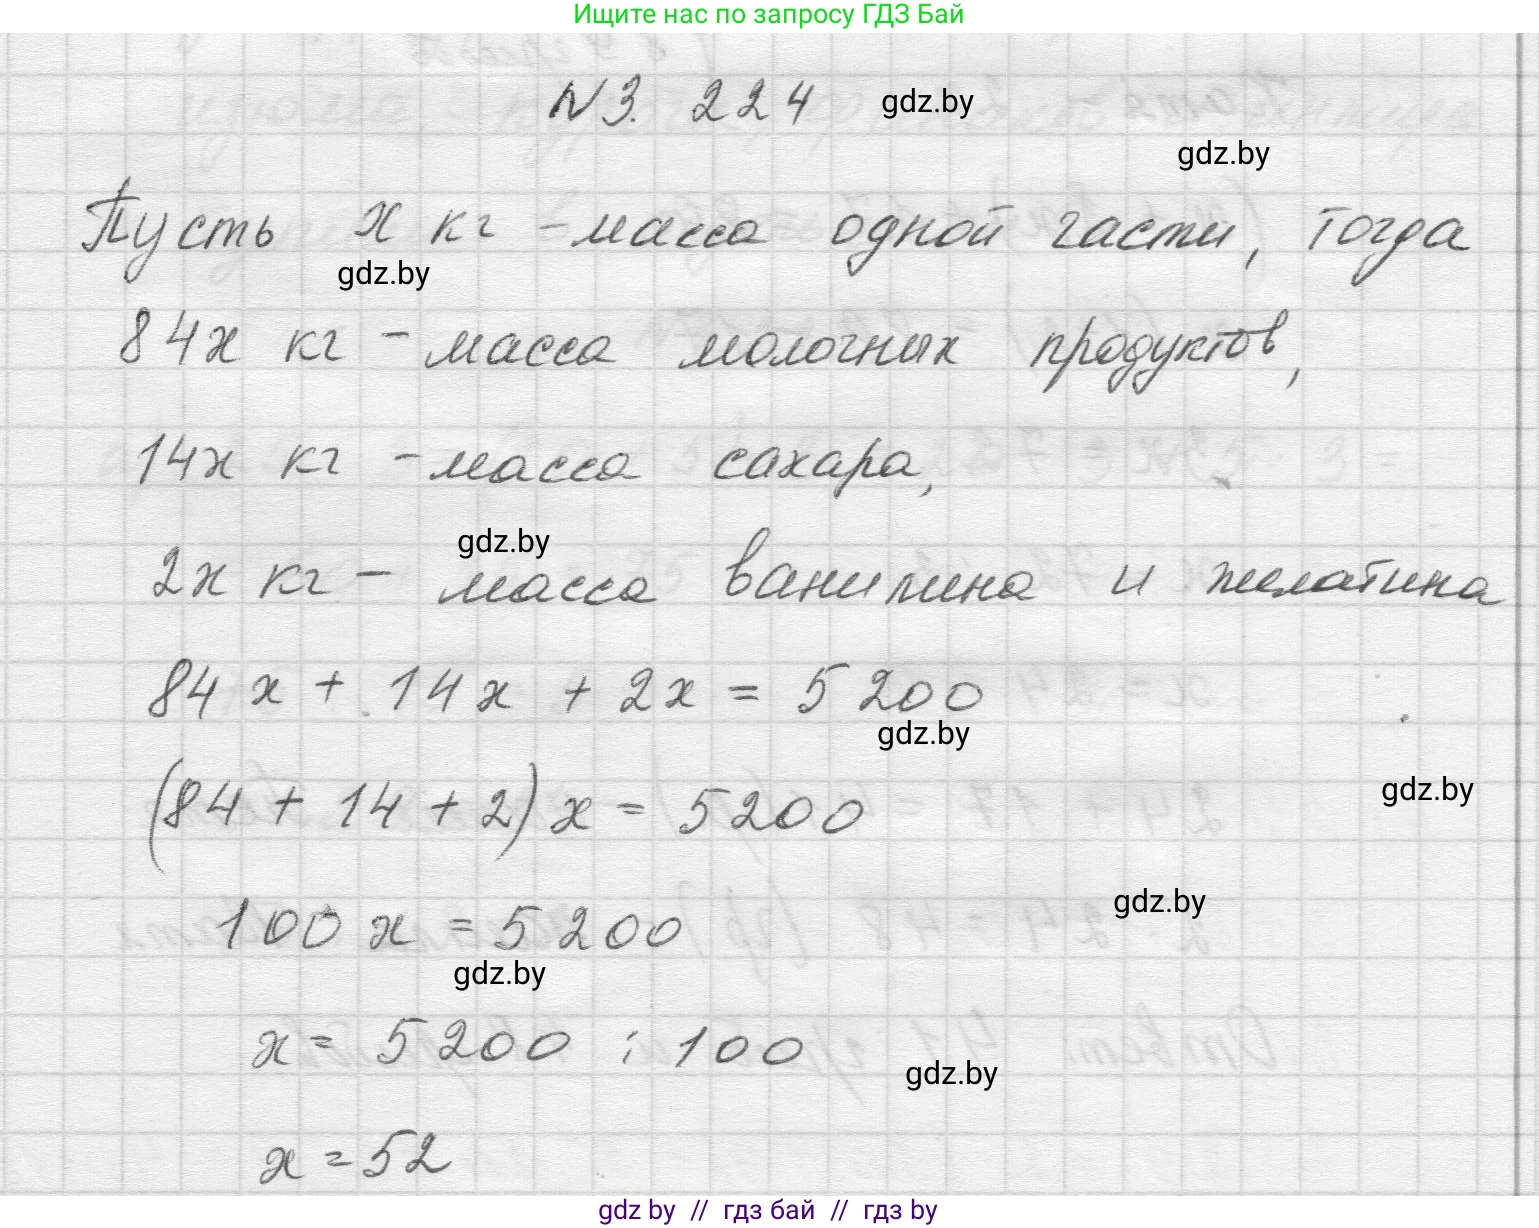 Ищите нас по запросу ГДЗ Бай
N3. 224 gdz.by
gdz.by
Пусть x кг - масса одной части, тогда
gdz.by
84x кг - масса молочных продуктов,
14x кг - масса сахара,
gdz.by
2x кг - масса ванилина и желатина
84x + 14x + 2x = 5200
gdz.by
gdz.by
(84 + 14 + 2)x = 5200
gdz.by
100x = 5200
gdz.by
x = 5200 : 100
gdz.by
x = 52
gdz by // гдз бай // гдз by